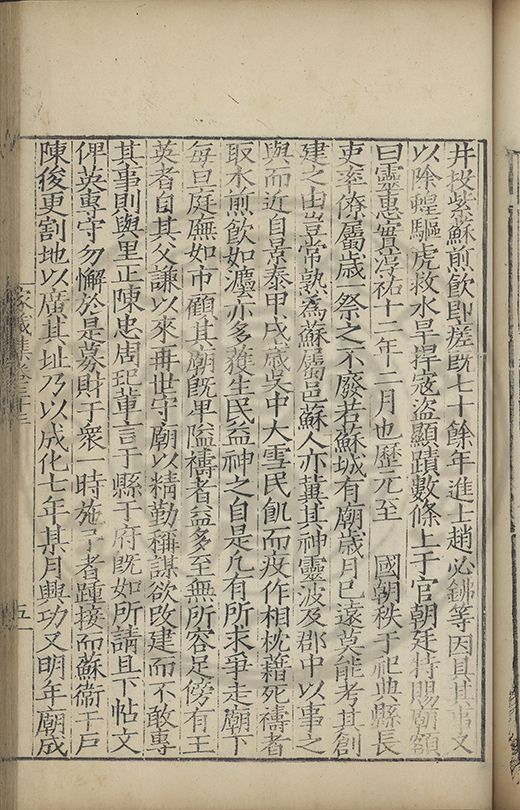 井投紫蘇煎飲即瘥既七十餘年進士趙必鏘等因具其事又
以除蝗驅虎救水旱捍寇盜顯蹟數條上于官朝廷特賜廟額
曰靈惠實淳祐十二年十二月也歷元至　國朝秩于祀典縣長
吏率僚屬歳一祭之不廢若蘇城有廟歳月已遠莫能考其創
建之由豈常熟為蘇屬邑蘇人亦冀其神靈波及郡中以事之
與而近自景泰甲戌歳吳中大雪民飢而疫作相枕藉死禱者
取水煎飲如瀘亦多獲生民益神之自是凡有所求爭走廟下
每旦庭廡如市顧其廟既卑隘禱者益多至無所容足傍有王
英者自其父謙以來再世守廟以精勤稱謀欲改建而不敢專
其事則與里正陳忠周玘輩言于縣于府既如所請且下帖文
俾英專守勿懈於是募財于衆一時施予者踵接而蘇衞千戸
陳俊更割地以廣其址乃以成化七年某月興功又明年廟成
家藏集卷三十三
五